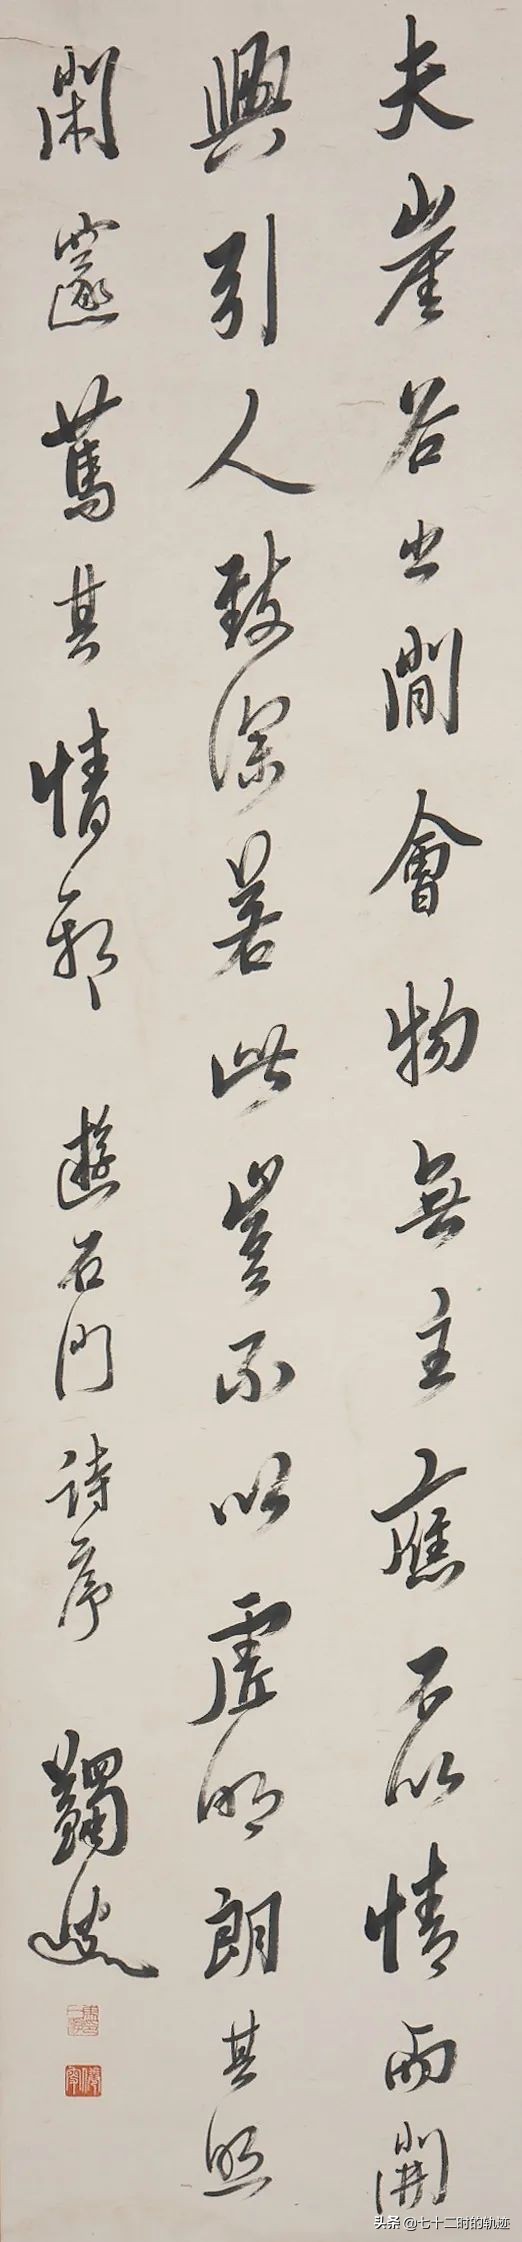 夫崖谷之間會物無主應不以情而開
興引人致深若此豈不以虛明朗其照
閑邃篤其情耶 遊石門詩序 蠲叟
头条 @七十二时的轨迹